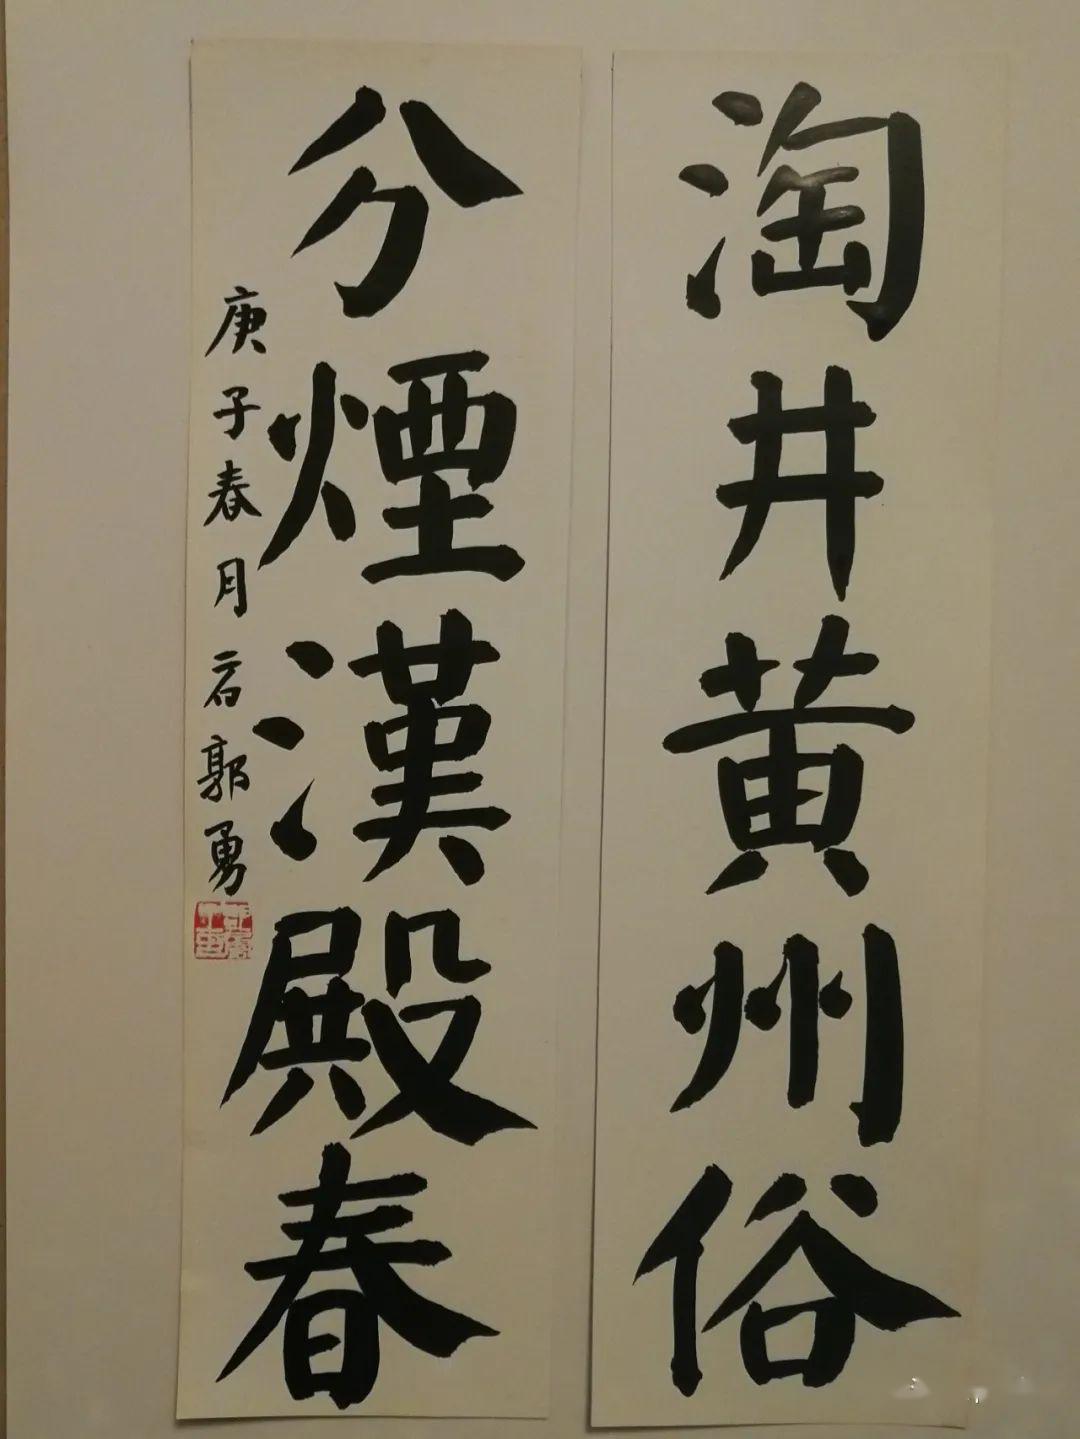 淘井黄州俗
分煙漢殿春
庚子春月云石郭勇